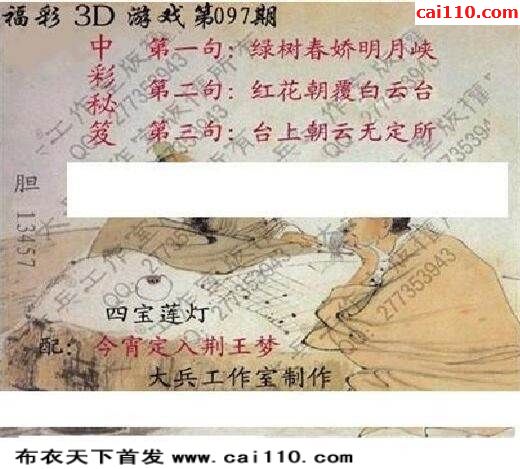 福彩3D游戏第097期
cai110.com
中彩秘笈
第一句：绿树春娇明月峡
第二句：红花朝覆白云台
第三句：台上朝云无定所
胆 13457
四宝莲灯
配：今宵定入荆王梦
大兵工作室制作
布衣天下首发 www.cai110.com